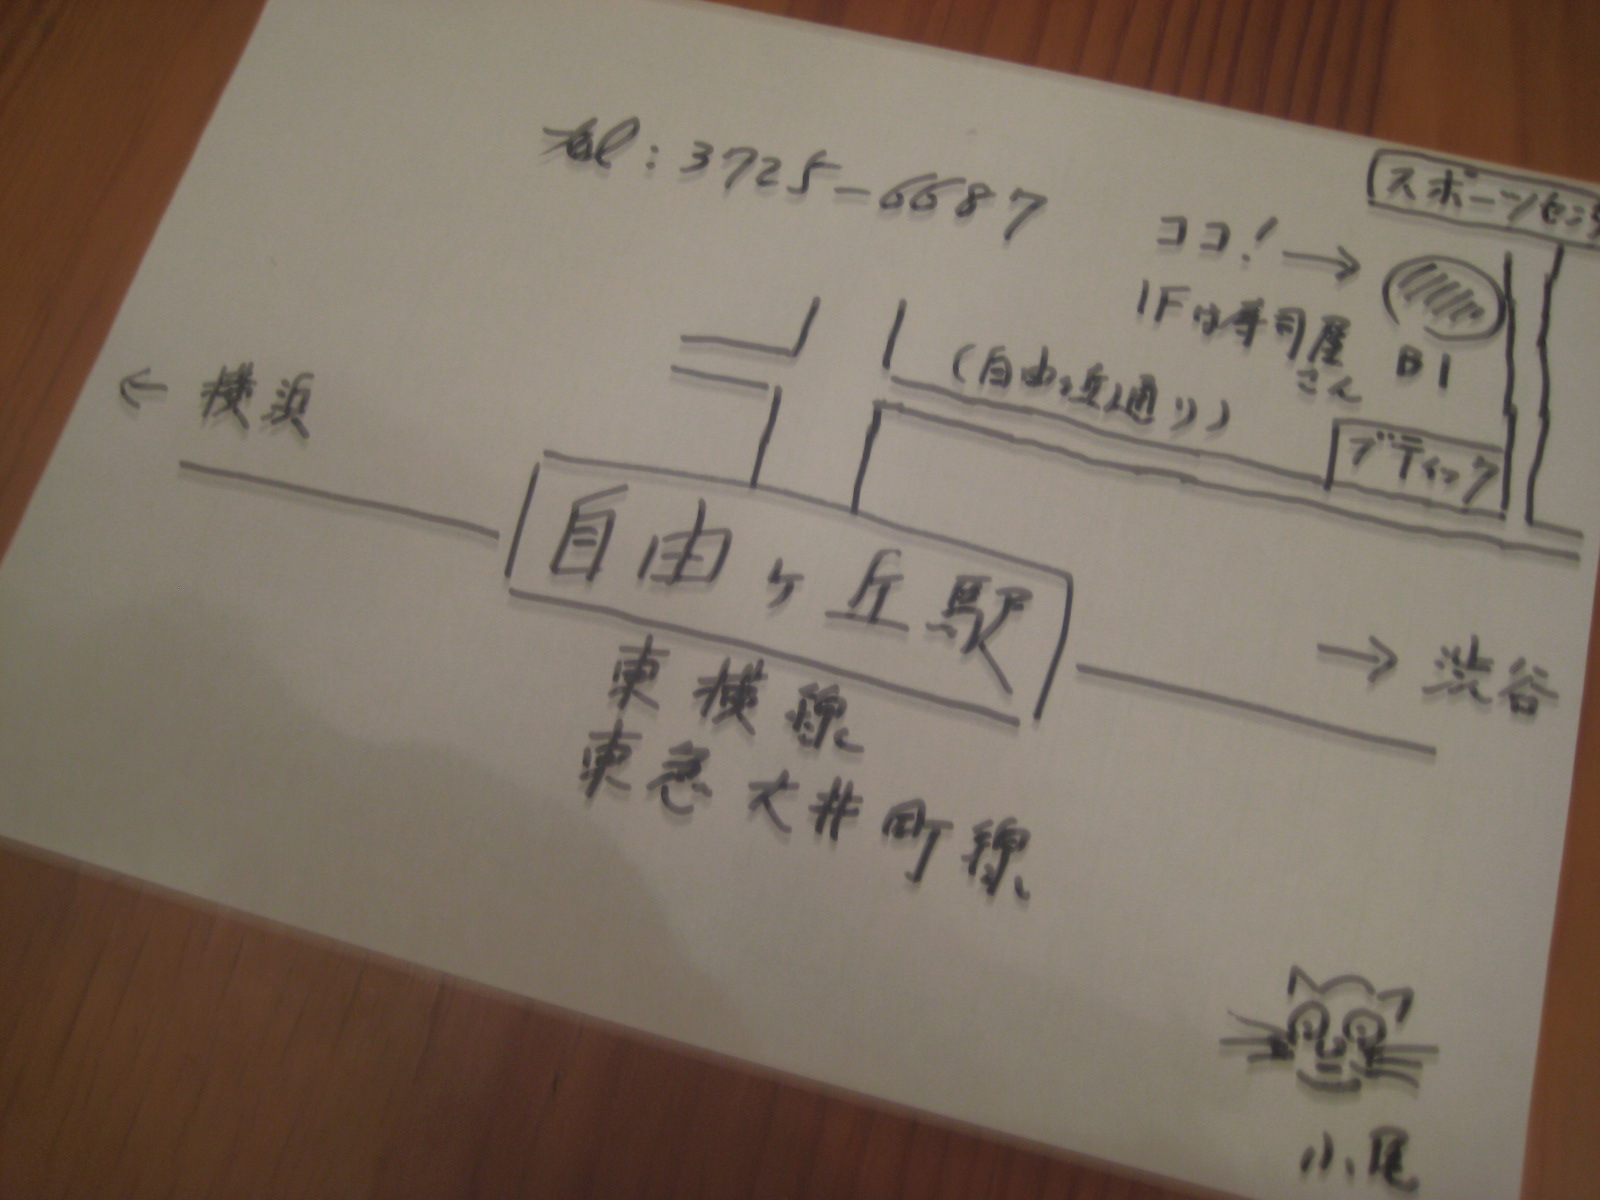 tel:3725-6687
スポーツセンタ
ココ!→
1Fは寿司屋
さん
B1
(自由ヶ丘通り)
ブティック
←横浜
自由ヶ丘駅
→渋谷
東横線
東急大井町線
小尾